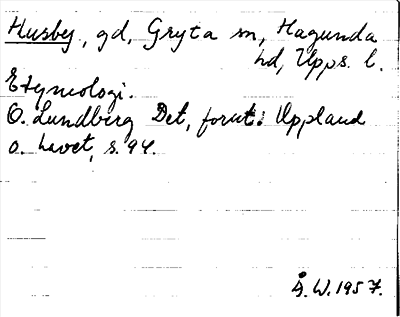 Husby, gd, Gryta sn, Hagunda
hd, Upps. l.
Etymologi.
O. Lundberg Det, forut: Uppland
o. havet, s. 94.
Å. W. 1957.